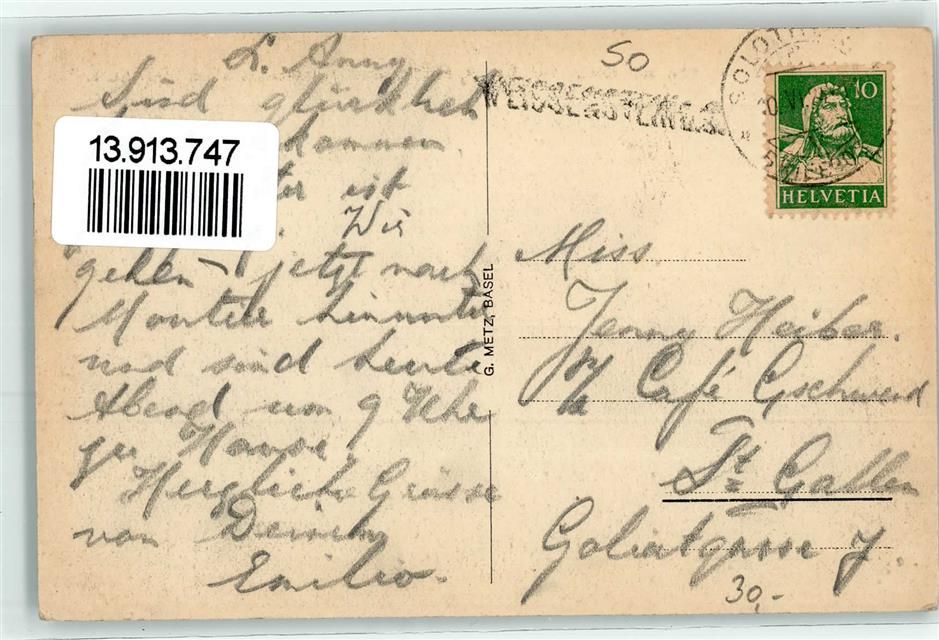 L. Anny
Sind glücklich
kommen
ist
Wir
gehen jetzt nach
Moutier hinunter
und sind heute
Abend um 9 Uhr
zu Hause.
Herzliche Grüsse
von Deinem
Emilio.
13.913.747
50
WEISSENSTEIN
SOLOTHURN
10
HELVETIA
G. METZ, BASEL
Miss
Jenny Heiber.
Café Gschwend
St. Gallen
Goliatgasse 7.
30,-